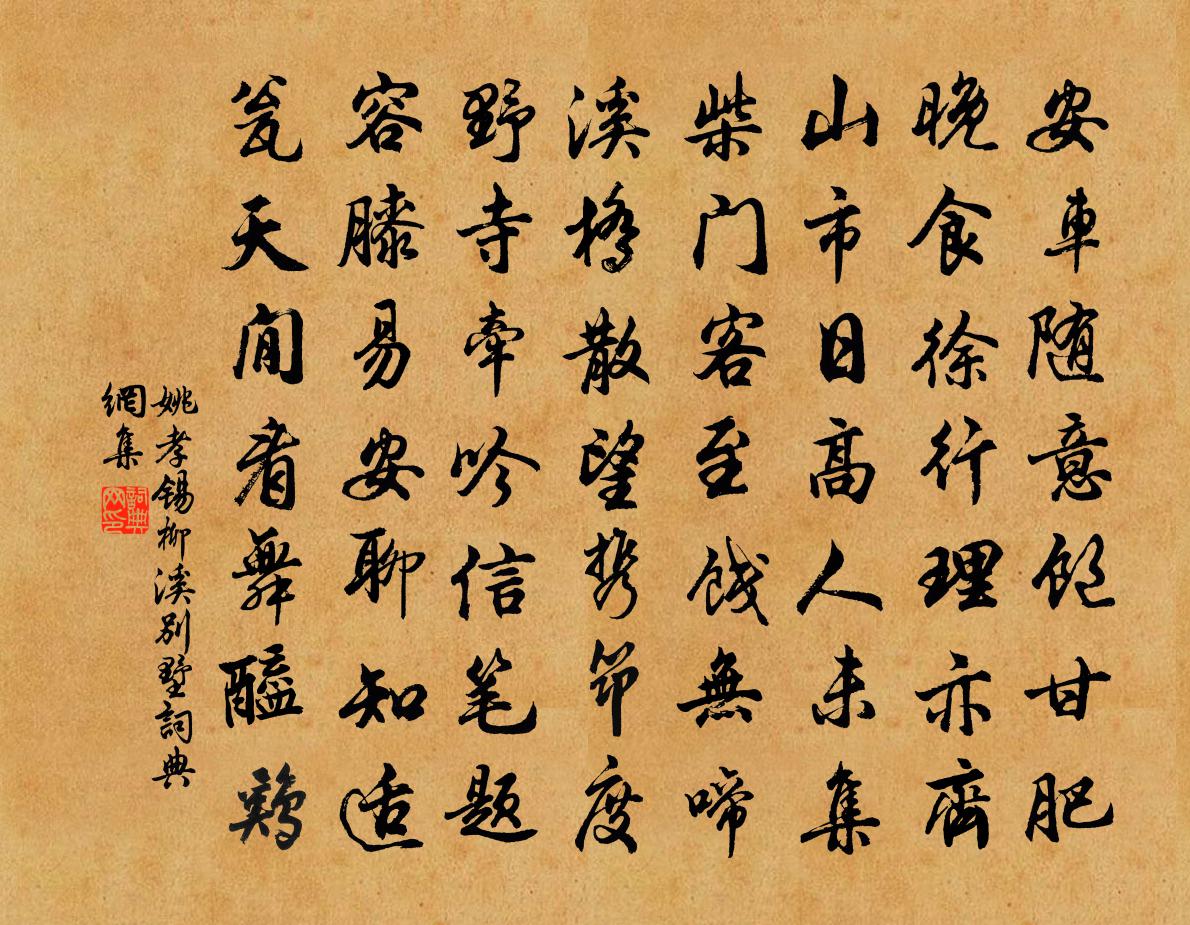 安車随意飽甘肥
晚食徐行理亦齊
山市日高人未集
柴门客至餓無啼
溪橋散望携筇度
野寺牽吟信笔题
容膝易安聊知适
瓮天閒看舞醯鷄
姚孝锡柳溪别墅詞典
網集
詞典網印